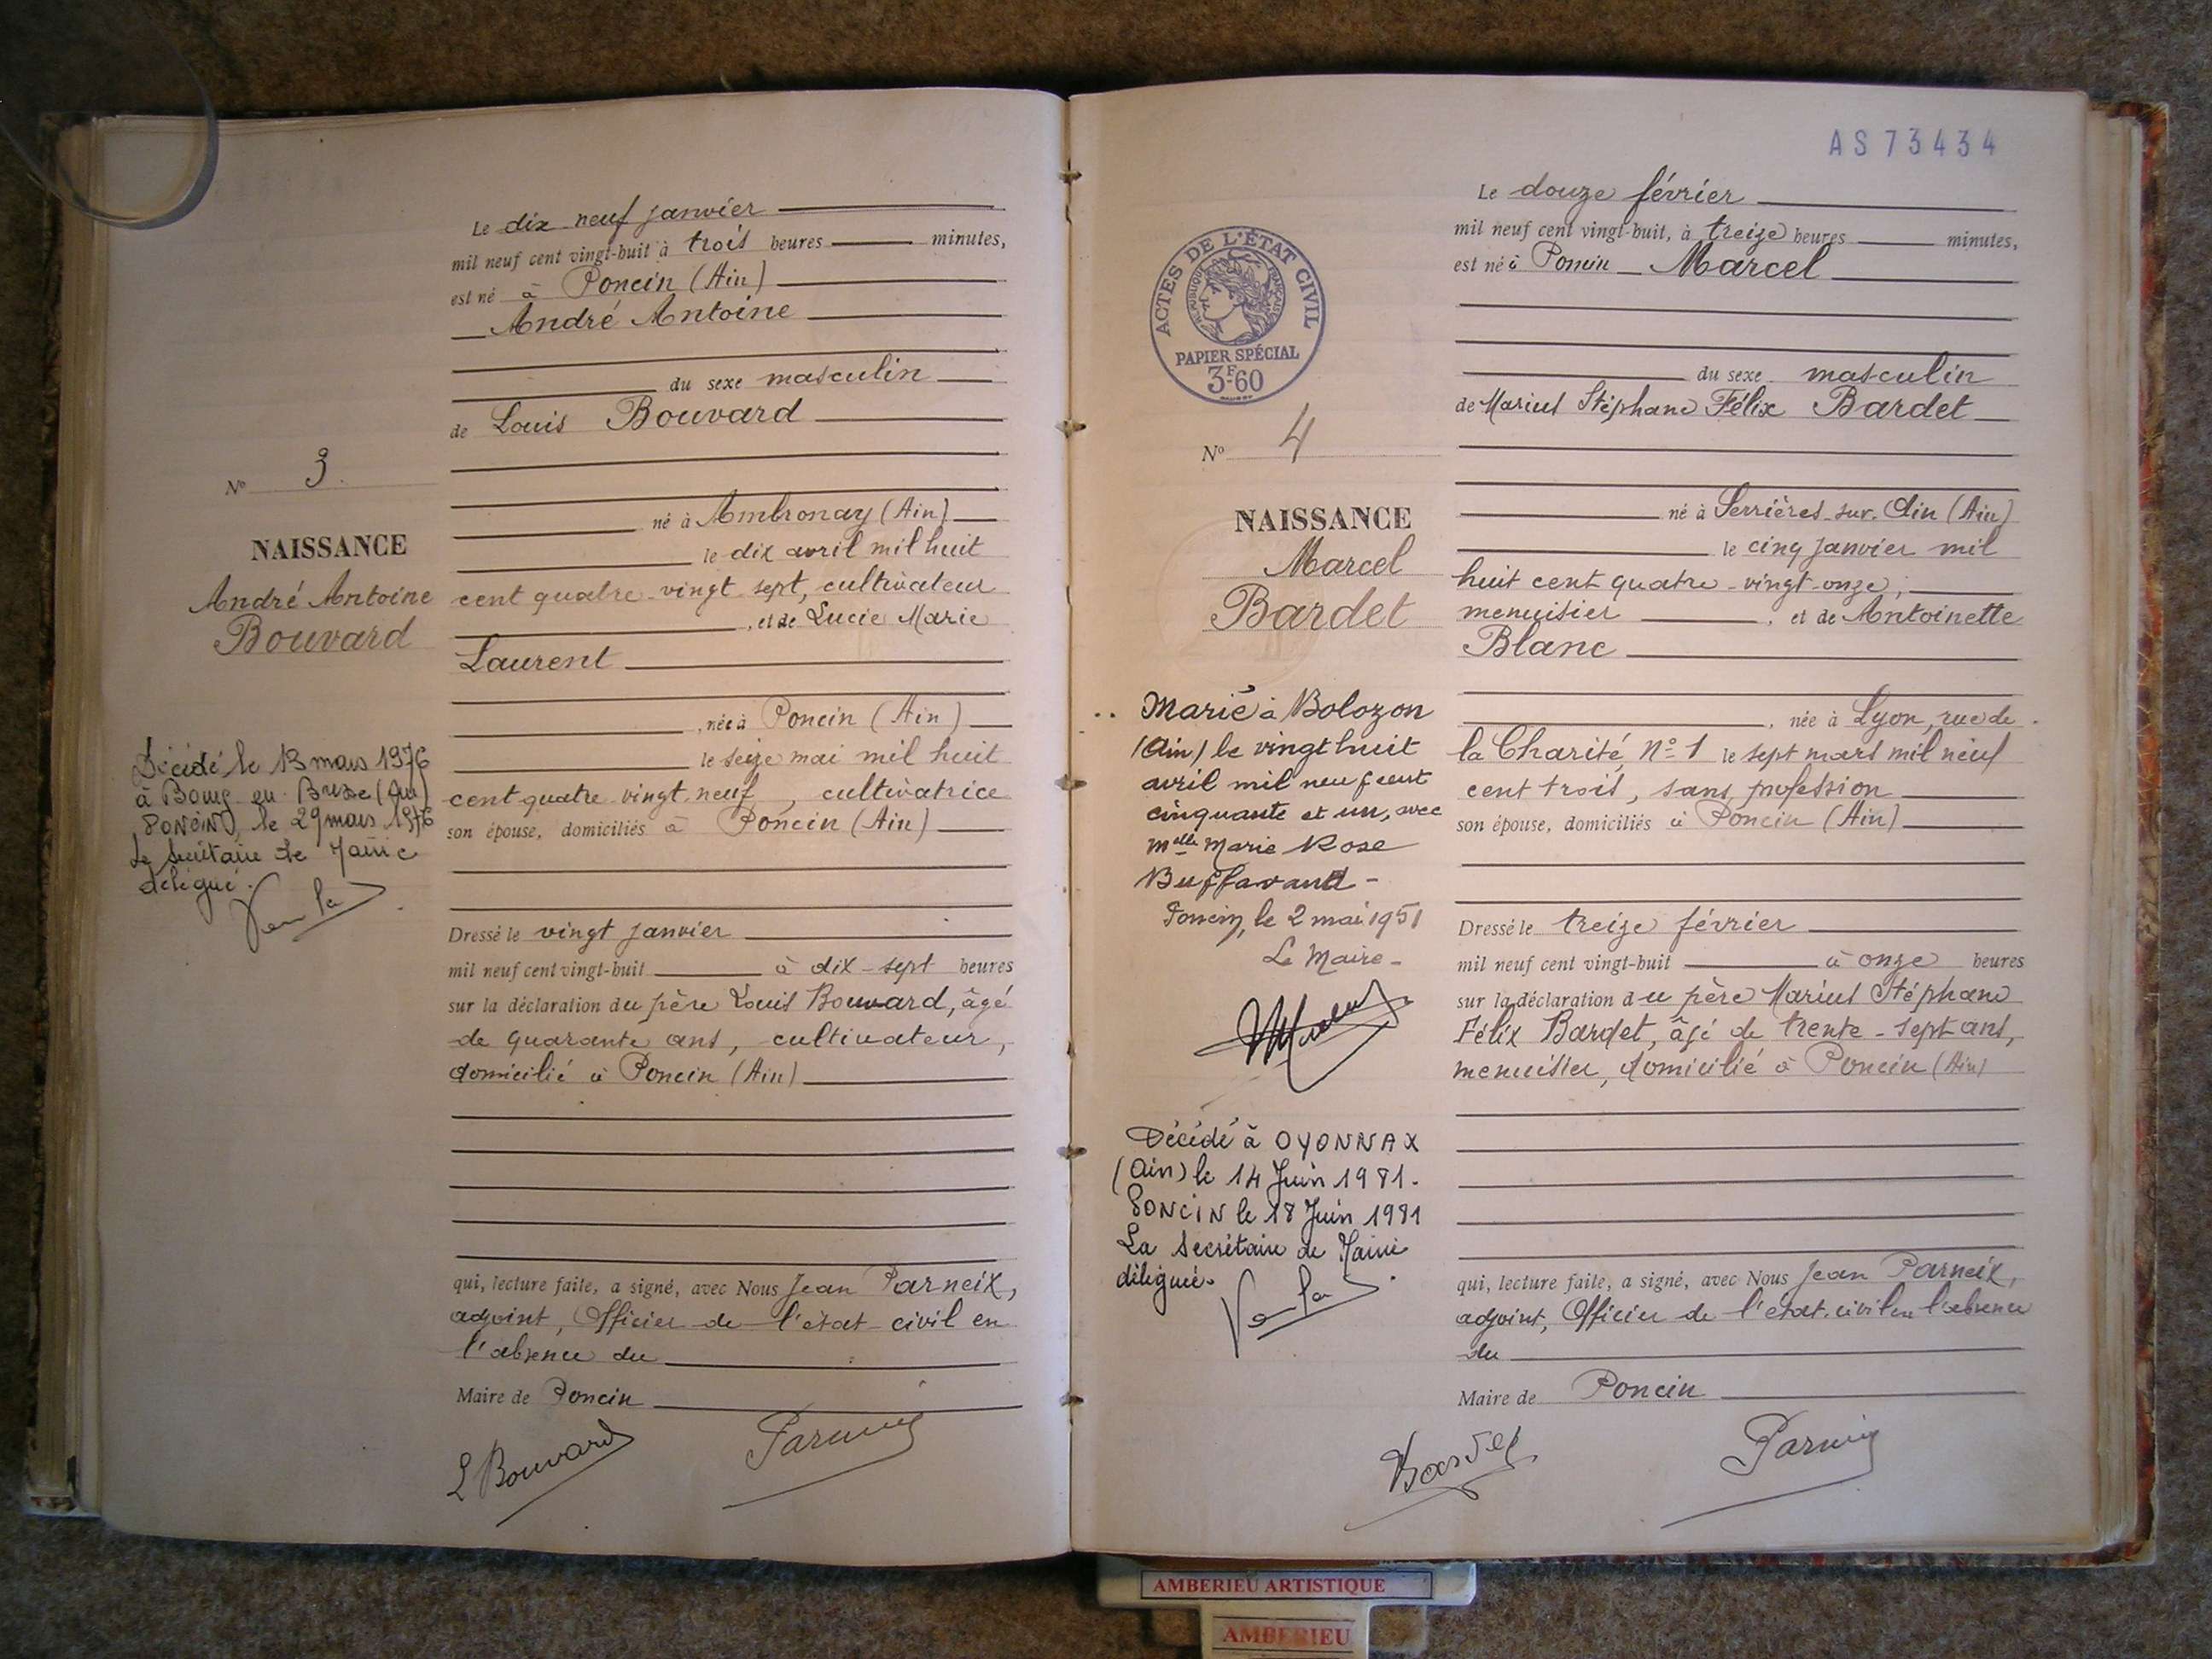 Le dix neuf janvier
mil neuf cent vingt-huit à trois heures minutes,
est né à Poncin (Ain)
André Antoine
du sexe masculin
de Louis Bouvard
né à Ambronay (Ain)
le dix avril mil huit
cent quatre-vingt sept, cultivateur
, et de Lucie Marie
Laurent
, née à Poncin (Ain)
le seize mai mil huit
cent quatre-vingt-neuf, cultivatrice
son épouse, domiciliés à Poncin (Ain)
Dressé le vingt janvier
mil neuf cent vingt-huit à dix-sept heures
sur la déclaration du père Louis Bouvard, âgé
de quarante ans, cultivateur,
domicilié à Poncin (Ain)
qui, lecture faite, a signé, avec Nous Jean Parneix,
adjoint, Officier de l'état-civil en
l'absence du
Maire de Poncin
L Bouvard
Parneix
N° 3.
NAISSANCE
André Antoine
Bouvard
Décédé le 13 mars 1976
à Bourg en Bresse (Ain)
PONCIN, le 29 mars 1976
Le Secrétaire de Mairie
délégué.
AS73434
ACTES DE L'ÉTAT CIVIL
RÉPUBLIQUE FRANÇAISE
PAPIER SPÉCIAL
3F60
N° 4
NAISSANCE
Marcel
Bardet
Marié à Bolozon
(Ain) le vingt huit
avril mil neuf cent
cinquante et un, avec
Melle Marie Rose
Buffavand -
Poncin, le 2 mai 1951
Le Maire -
Décédé à OYONNAX
(Ain) le 14 Juin 1981.
PONCIN le 18 Juin 1981
La Secrétaire de Mairie
déléguée.
Le douze février
mil neuf cent vingt-huit, à treize heures minutes,
est né à Poncin Marcel
du sexe masculin
de Marius Stéphane Félix Bardet
né à Serrières-sur-Ain (Ain)
le cinq janvier mil
huit cent quatre-vingt-onze,
menuisier , et de Antoinette
Blanc
, née à Lyon, rue de
la Charité, N° 1 le sept mars mil neuf
cent trois, sans profession
son épouse, domiciliés à Poncin (Ain)
Dressé le treize février
mil neuf cent vingt-huit à onze heures
sur la déclaration du père Marius Stéphane
Félix Bardet, âgé de trente-sept ans,
menuisier, domicilié à Poncin (Ain)
qui, lecture faite, a signé, avec Nous Jean Parneix,
adjoint, Officier de l'état-civil en l'absence
du
Maire de Poncin
Bardet
Parneix
AMBERIEU ARTISTIQUE
AMBERIEU